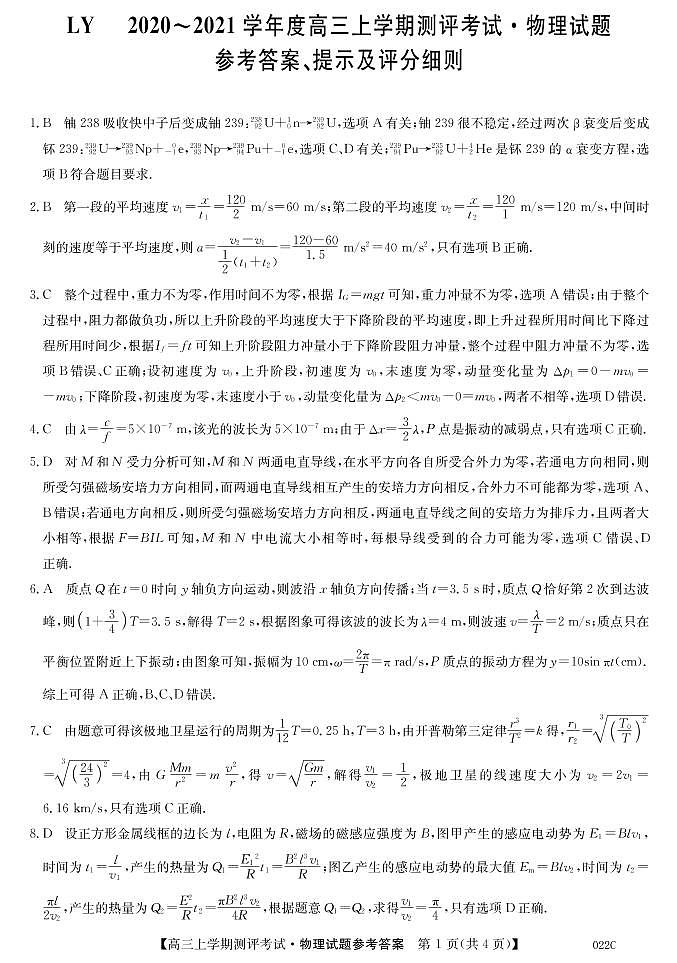 LY 2020～2021 学年度高三上学期测评考试·物理试题
参考答案、提示及评分细则
1. B 铀 238 吸收快中子后变成铀 239：²³⁸₉₂U＋¹₀n→²³⁹₉₂U，选项 A 有关；铀 239 很不稳定，经过两次 β 衰变后变成
钚 239：²³⁹₉₂U→²³⁹₉₃Np＋⁰₋₁e，²³⁹₉₃Np→²³⁹₉₄Pu＋⁰₋₁e，选项 C、D 有关；²³⁹₉₄Pu→²³⁵₉₂U＋⁴₂He 是钚 239 的 α 衰变方程，选
项 B 符合题目要求.
2. B 第一段的平均速度 v₁＝x/t₁＝120/2 m/s＝60 m/s；第二段的平均速度 v₂＝x/t₂＝120/1 m/s＝120 m/s，中间时
刻的速度等于平均速度，则 a＝(v₂－v₁)/(½(t₁＋t₂))＝(120－60)/1.5 m/s²＝40 m/s²，只有选项 B 正确.
3. C 整个过程中，重力不为零，作用时间不为零，根据 I_G＝mgt 可知，重力冲量不为零，选项 A 错误；由于整个
过程中，阻力都做负功，所以上升阶段的平均速度大于下降阶段的平均速度，即上升过程所用时间比下降过
程所用时间少，根据I_f＝ft 可知上升阶段阻力冲量小于下降阶段阻力冲量，整个过程中阻力冲量不为零，选
项 B 错误、C 正确；设初速度为 v₀，上升阶段，初速度为 v₀，末速度为零，动量变化量为 Δp₁＝0－mv₀＝
－mv₀；下降阶段，初速度为零，末速度小于 v₀，动量变化量为 Δp₂＜mv₀－0＝mv₀，两者不相等，选项 D 错误.
4. C 由 λ＝c/f＝5×10⁻⁷ m，该光的波长为 5×10⁻⁷ m；由于 Δx＝3/2 λ，P 点是振动的减弱点，只有选项 C 正确.
5. D 对 M 和 N 受力分析可知，M 和 N 两通电直导线，在水平方向各自所受合外力为零，若通电方向相同，则
所受匀强磁场安培力方向相同，而两通电直导线相互产生的安培力方向相反，合外力不可能都为零，选项 A、
B 错误；若通电方向相反，则所受匀强磁场安培力方向相反，两通电直导线之间的安培力为排斥力，且两者大
小相等，根据 F＝BIL 可知，M 和 N 中电流大小相等时，每根导线受到的合力可能为零，选项 C 错误、D
正确.
6. A 质点 Q 在 t＝0 时向 y 轴负方向运动，则波沿 x 轴负方向传播；当 t＝3.5 s 时，质点 Q 恰好第 2 次到达波
峰，则(1＋3/4)T＝3.5 s，解得 T＝2 s，根据图象可得该波的波长为 λ＝4 m，则波速 v＝λ/T＝2 m/s；质点只在
平衡位置附近上下振动；由图象可知，振幅为 10 cm，ω＝2π/T＝π rad/s，P 质点的振动方程为 y＝10sin πt(cm).
综上可得 A 正确，B、C、D 错误.
7. C 由题意可得该极地卫星运行的周期为1/12 T＝0.25 h，T＝3 h，由开普勒第三定律r³/T²＝k 得，r₁/r₂＝∛(T₀/T)²
＝∛(24/3)²＝4，由 G Mm/r²＝m v²/r，得 v＝√(Gm/r)，解得 v₁/v₂＝1/2，极地卫星的线速度大小为 v₂＝2v₁＝
6.16 km/s，只有选项 C 正确.
8. D 设正方形金属线框的边长为 l，电阻为 R，磁场的磁感应强度为 B，图甲产生的感应电动势为 E₁＝Blv₁，
时间为 t₁＝l/v₁，产生的热量为 Q₁＝E₁²/R t₁＝B²l³v₁/R；图乙产生的感应电动势的最大值 E_m＝Blv₂，时间为 t₂＝
πl/2v₂，产生的热量为 Q₂＝E²/R t₂＝πB²l³v₂/4R，根据题意 Q₁＝Q₂，求得v₁/v₂＝π/4，只有选项 D 正确.
【高三上学期测评考试·物理试题参考答案 第 1 页(共 4 页)】 022C